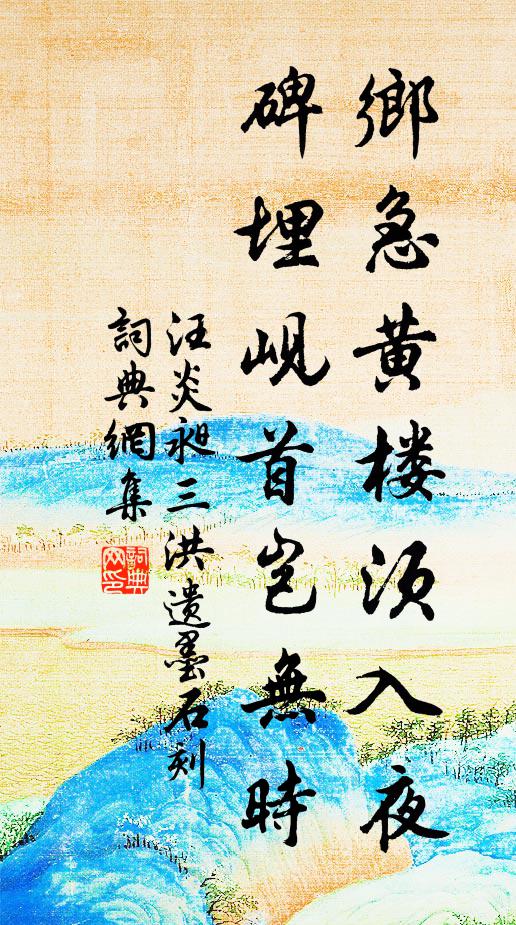 鄉急黄楼須入夜
碑埋峴首岂無時
汪炎昶三洪遗墨石刻
詞典網集
詞典